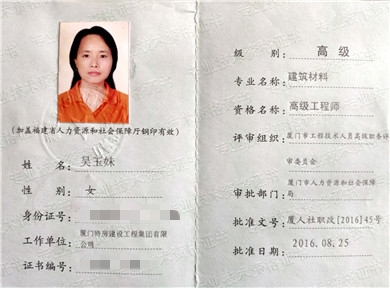 (加盖福建省人力资源和社会保障厅钢印有效)
姓 名: 吴玉妹
性 别: 女
身份证号:
工作单位: 厦门特房建设工程集团有限
公司
证书编号:
级 别: 高 级
专业名称: 建筑材料
资格名称: 高级工程师
评审组织: 厦门市工程技术人员高级职务评
审委员会
审批部门: 厦门市人力资源和社会保障
局
批准文号: 厦人社职改[2016]45号
批准日期: 2016.08.25